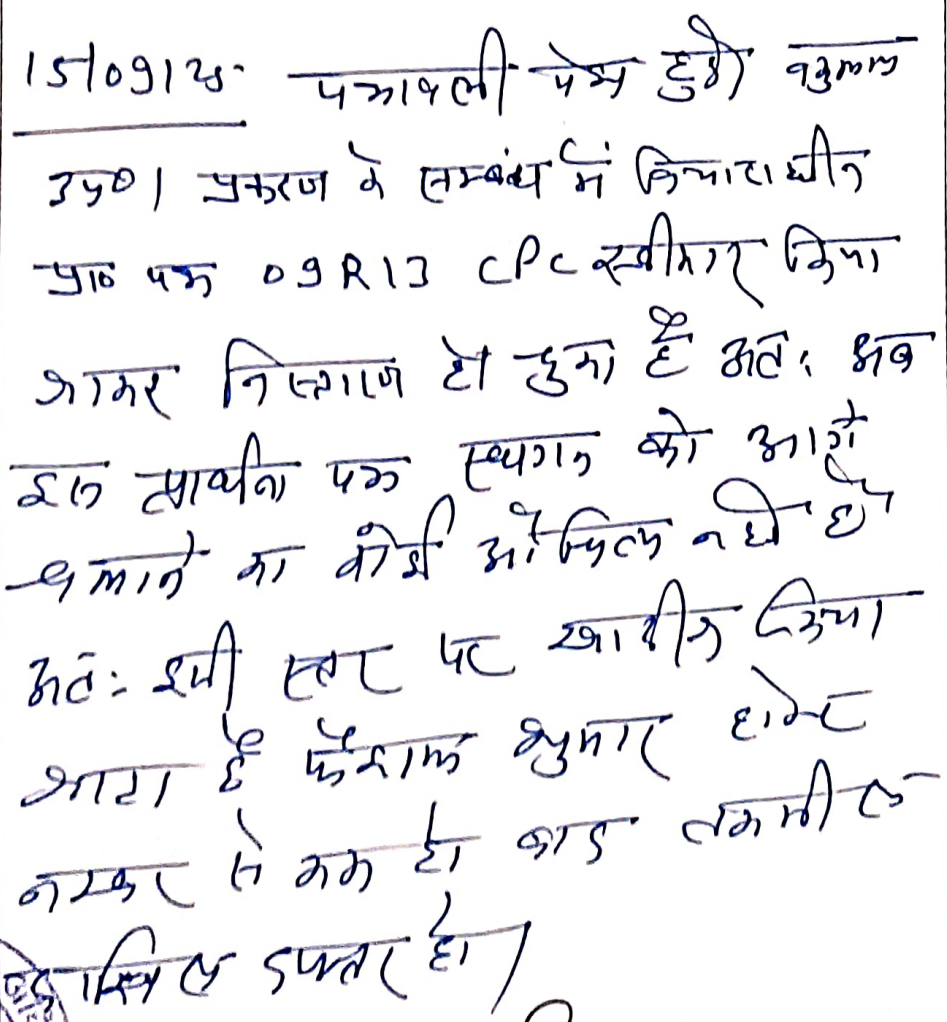 15/09/25 पत्रावली पेश हुई। वकुलाय
उप0। प्रकरण के सम्बंध में विचाराधीन
प्रा0 पत्र 09R13 CPC स्वीकार किया
जाकर निस्तारण हो चुका है अतः अब
इस प्रार्थना पत्र स्थगन को आगे
चलाने का कोई औचित्य नहीं है
अतः इसी स्तर पर खारीज किया
जाता है फैसल शुमार होकर
नम्बर से कम हो बाद तकमील
दाखिल दफ्तर हो।